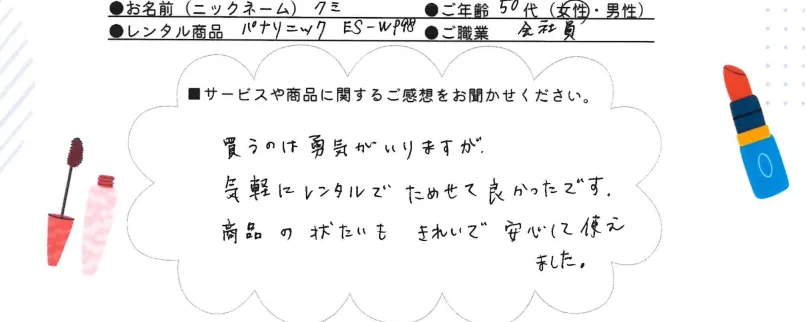 ●お名前（ニックネーム） クミ ●ご年齢 50代（女性・男性）
●レンタル商品 パナソニック ES-WP98 ●ご職業 会社員
■サービスや商品に関するご感想をお聞かせください。
買うのは勇気がいりますが、
気軽にレンタルでためせて良かったです。
商品の状たいもきれいで安心して使え
ました。